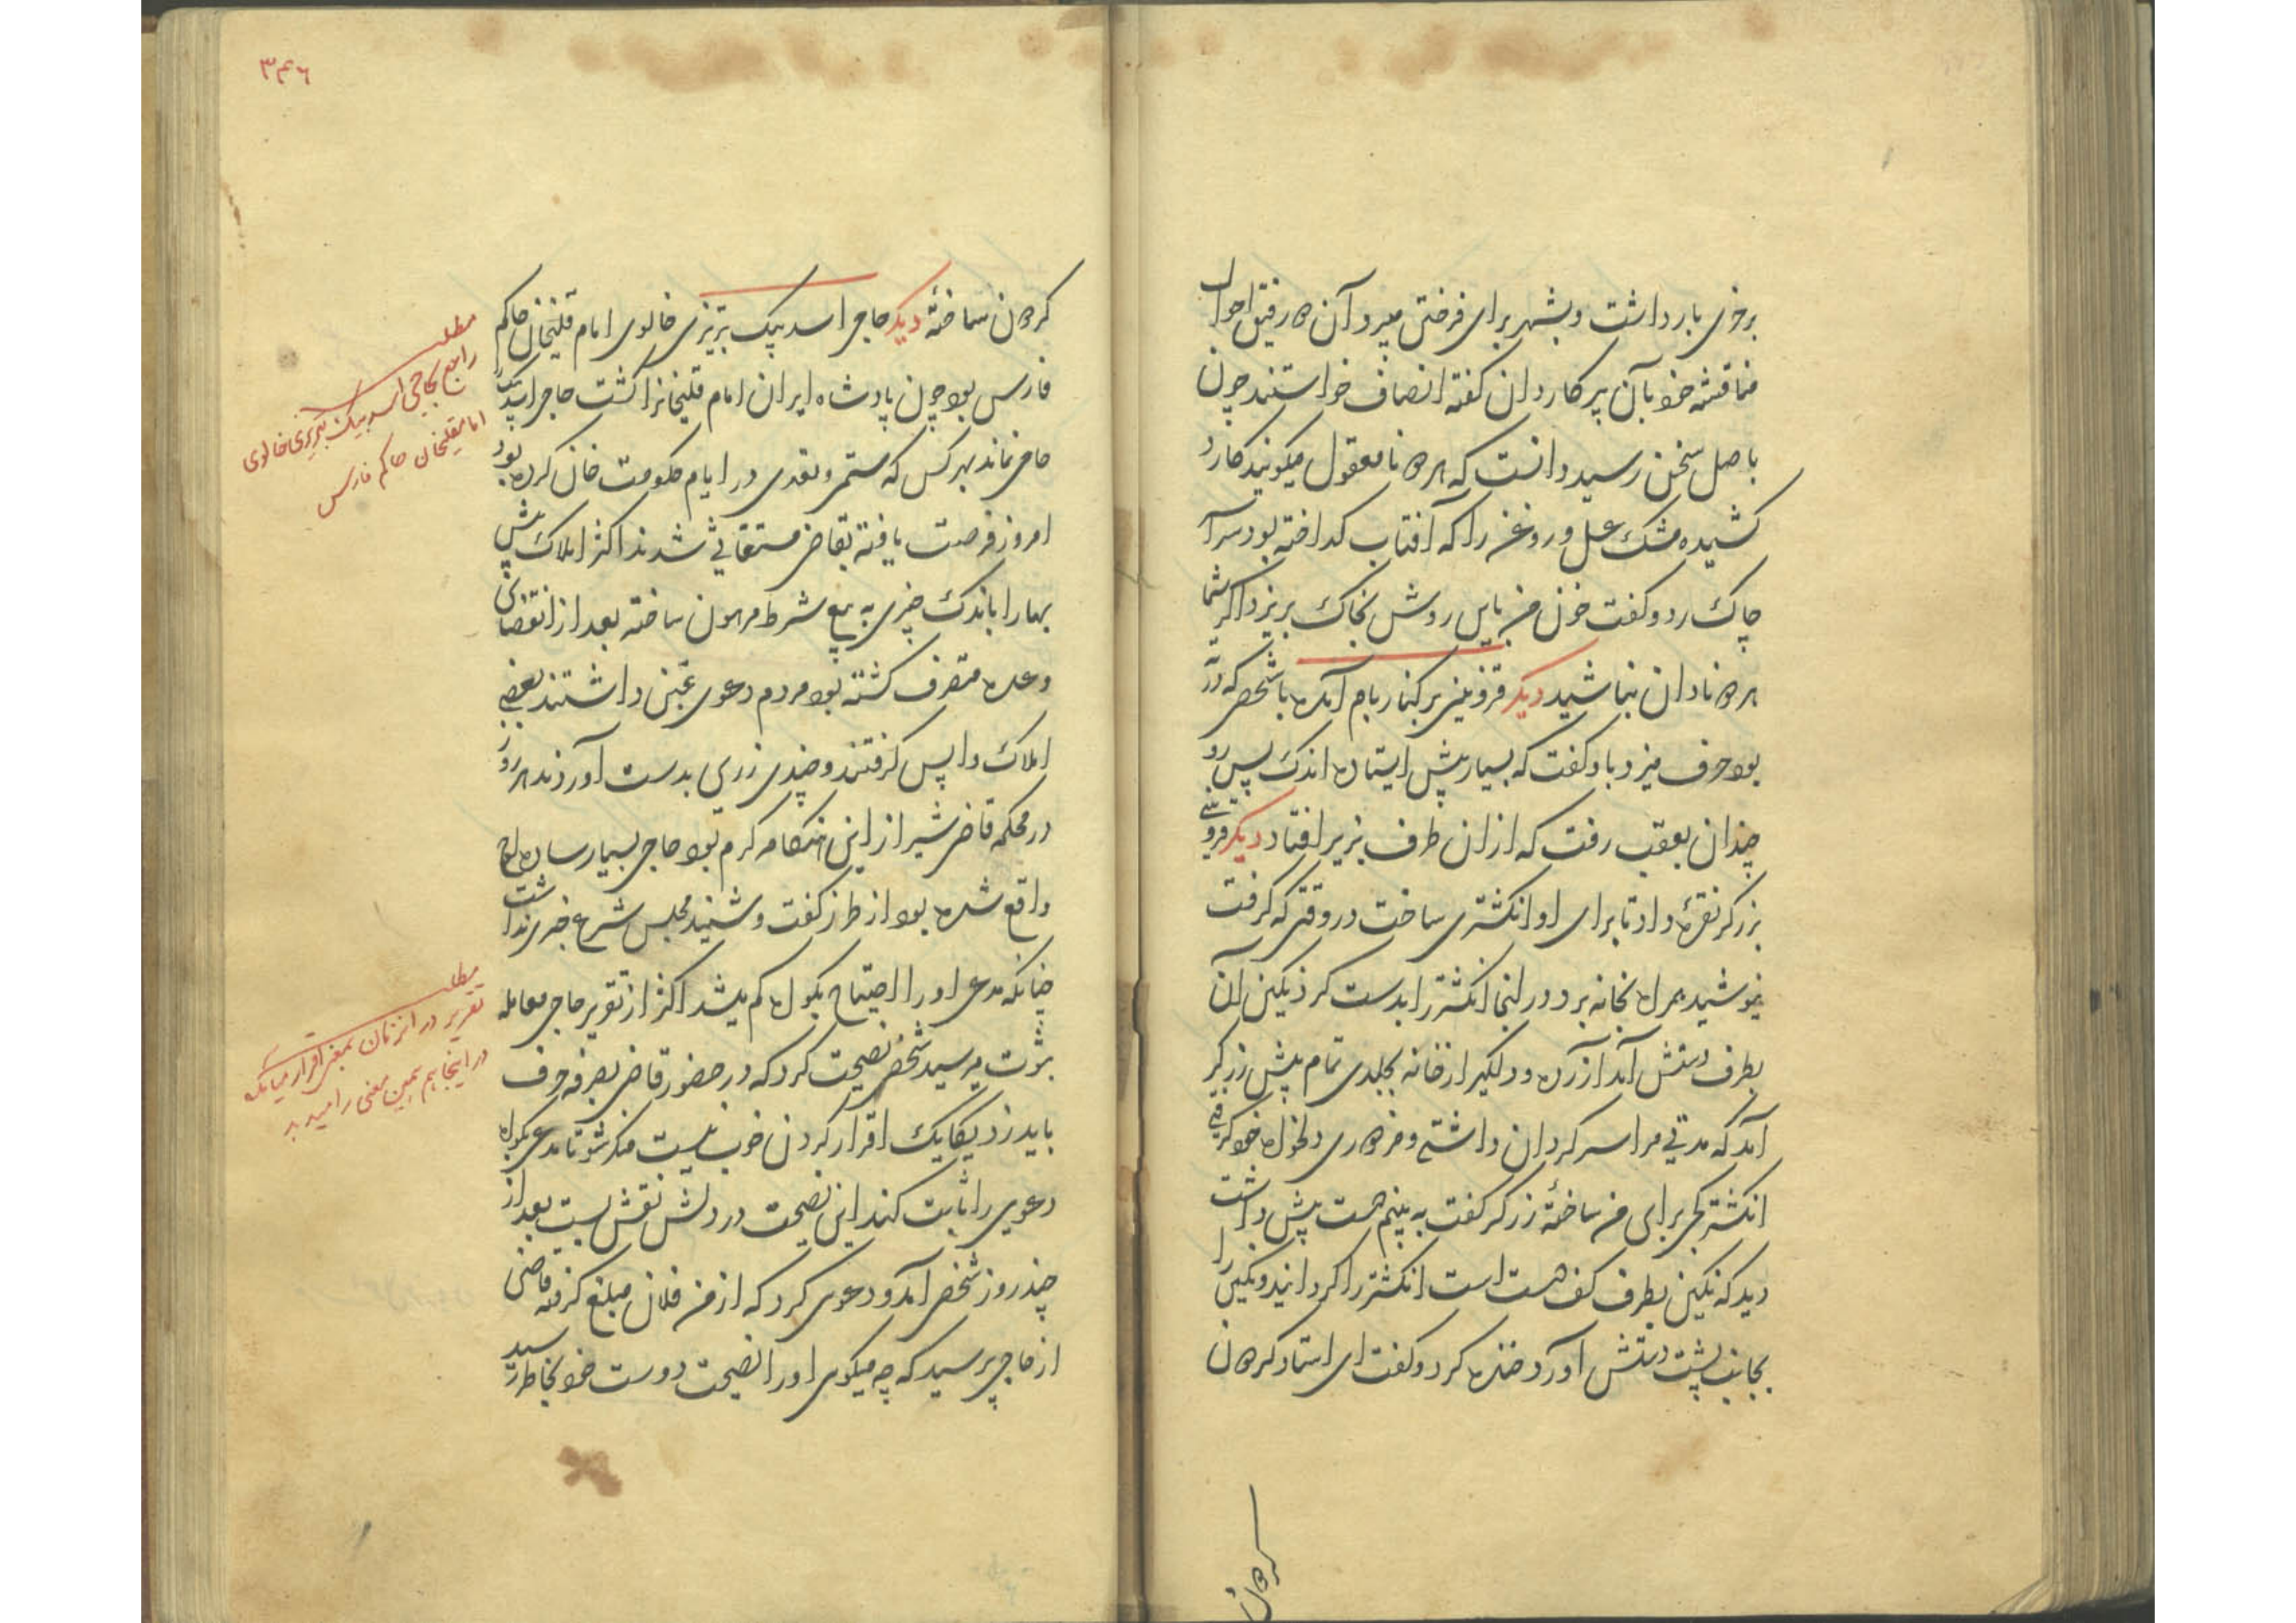 برخری بار داشت و بشهر برای فروختن میبرد آن ده رفیق احوال
مناقشه خود بآن پیر کاردان گفته انصاف خواستند چون
باصل سخن رسید دانست که نامعقول میکویند کارد
کشیده مشک عسل و روغن را که افتاب کداخته بود سرآ
چاک زد و کفت خون من باین روش بخاک بریزد اکر شما
نادان نباشید دیکر قزوینی بر کنار بام آمده با شخصی که در ته
بود حرف میزد باو کفت که بسیار پیش ایستاده اندک پس رو
چندان بعقب رفت که از ان طرف بزیر افتاد دیکر قزوینی
بزرکر نقره داد تا برای او انکشتری ساخت در وقتی که کرفت
نپوشید همراه بخانه برد و در انجا انکشتر را بدست کرد نکین آن
بطرف دستش آمد آزرده و دلکیر از خانه بجلدی تمام پیش زرکر
آمد که مدتی مرا سر کردان داشتی و مزدوری دلخواه خود کرفتی
انکشتر کجی برای من ساختهٔ زرکر کفت به بینم دست پیش داشت
دید که نکین بطرف کف دست است انکشتر را کردانید و نکین را
بجانب پشت دستش آورد خنده کرد و کفت ای استاد کردن
کردن
۳۴۶
کردن ساختهٔ دیکر حاجی اسد بیک تبریزی خالوی امام قلیخان حاکم
فارس بود چون پادشاه ایران امام قلیخانرا کشت حاجی اسد بیک را
حامی نماند بهر کس که ستمی و تعدی در ایام حکومت خان کرده بود
امروز فرصت یافته بقاضی مستغاثی شدند اکثر املاک بیش
بها را باندک چیزی به بیع شرط مرهون ساخته بعد از انقضای
وعده متصرف کشته بود مردم دعوی غبن داشتند بعضی
املاک واپس کرفتند و چندی زری بدست آوردند هر روز
در محکمه قاضی شیراز این هنکامه کرم بود حاجی بسیار ساده لوح
واقع شده بود از طرز کفت و شنید مجلس شرع خبر نداشت
چنانکه مدعی او را احتیاج بکواه کم میشد اکثر از تقریر حاجی معامله
بثبوت میرسید شخصی نصیحت کرد که در حضور قاضی بصرفه حرف
باید زد یکایک اقرار کردن خوب نیست منکر شو تا مدعی بکواه
دعوی را ثابت کند این نصیحت در دلش نقش بست بعد از
چند روز شخصی آمد و دعوی کرد که از من فلان مبلغ کرفته قاضی
از حاجی پرسید که چه میکوی او را نصیحت دوست خود بخاطر رسید
مطلب
راجع بحاجی اسد بیک تبریزی خالوی
امامقلیخان حاکم فارس
مطلب
تقریر در انزمان بمعنی اقرار میامده
در اینجا هم همین معنی را میدهد